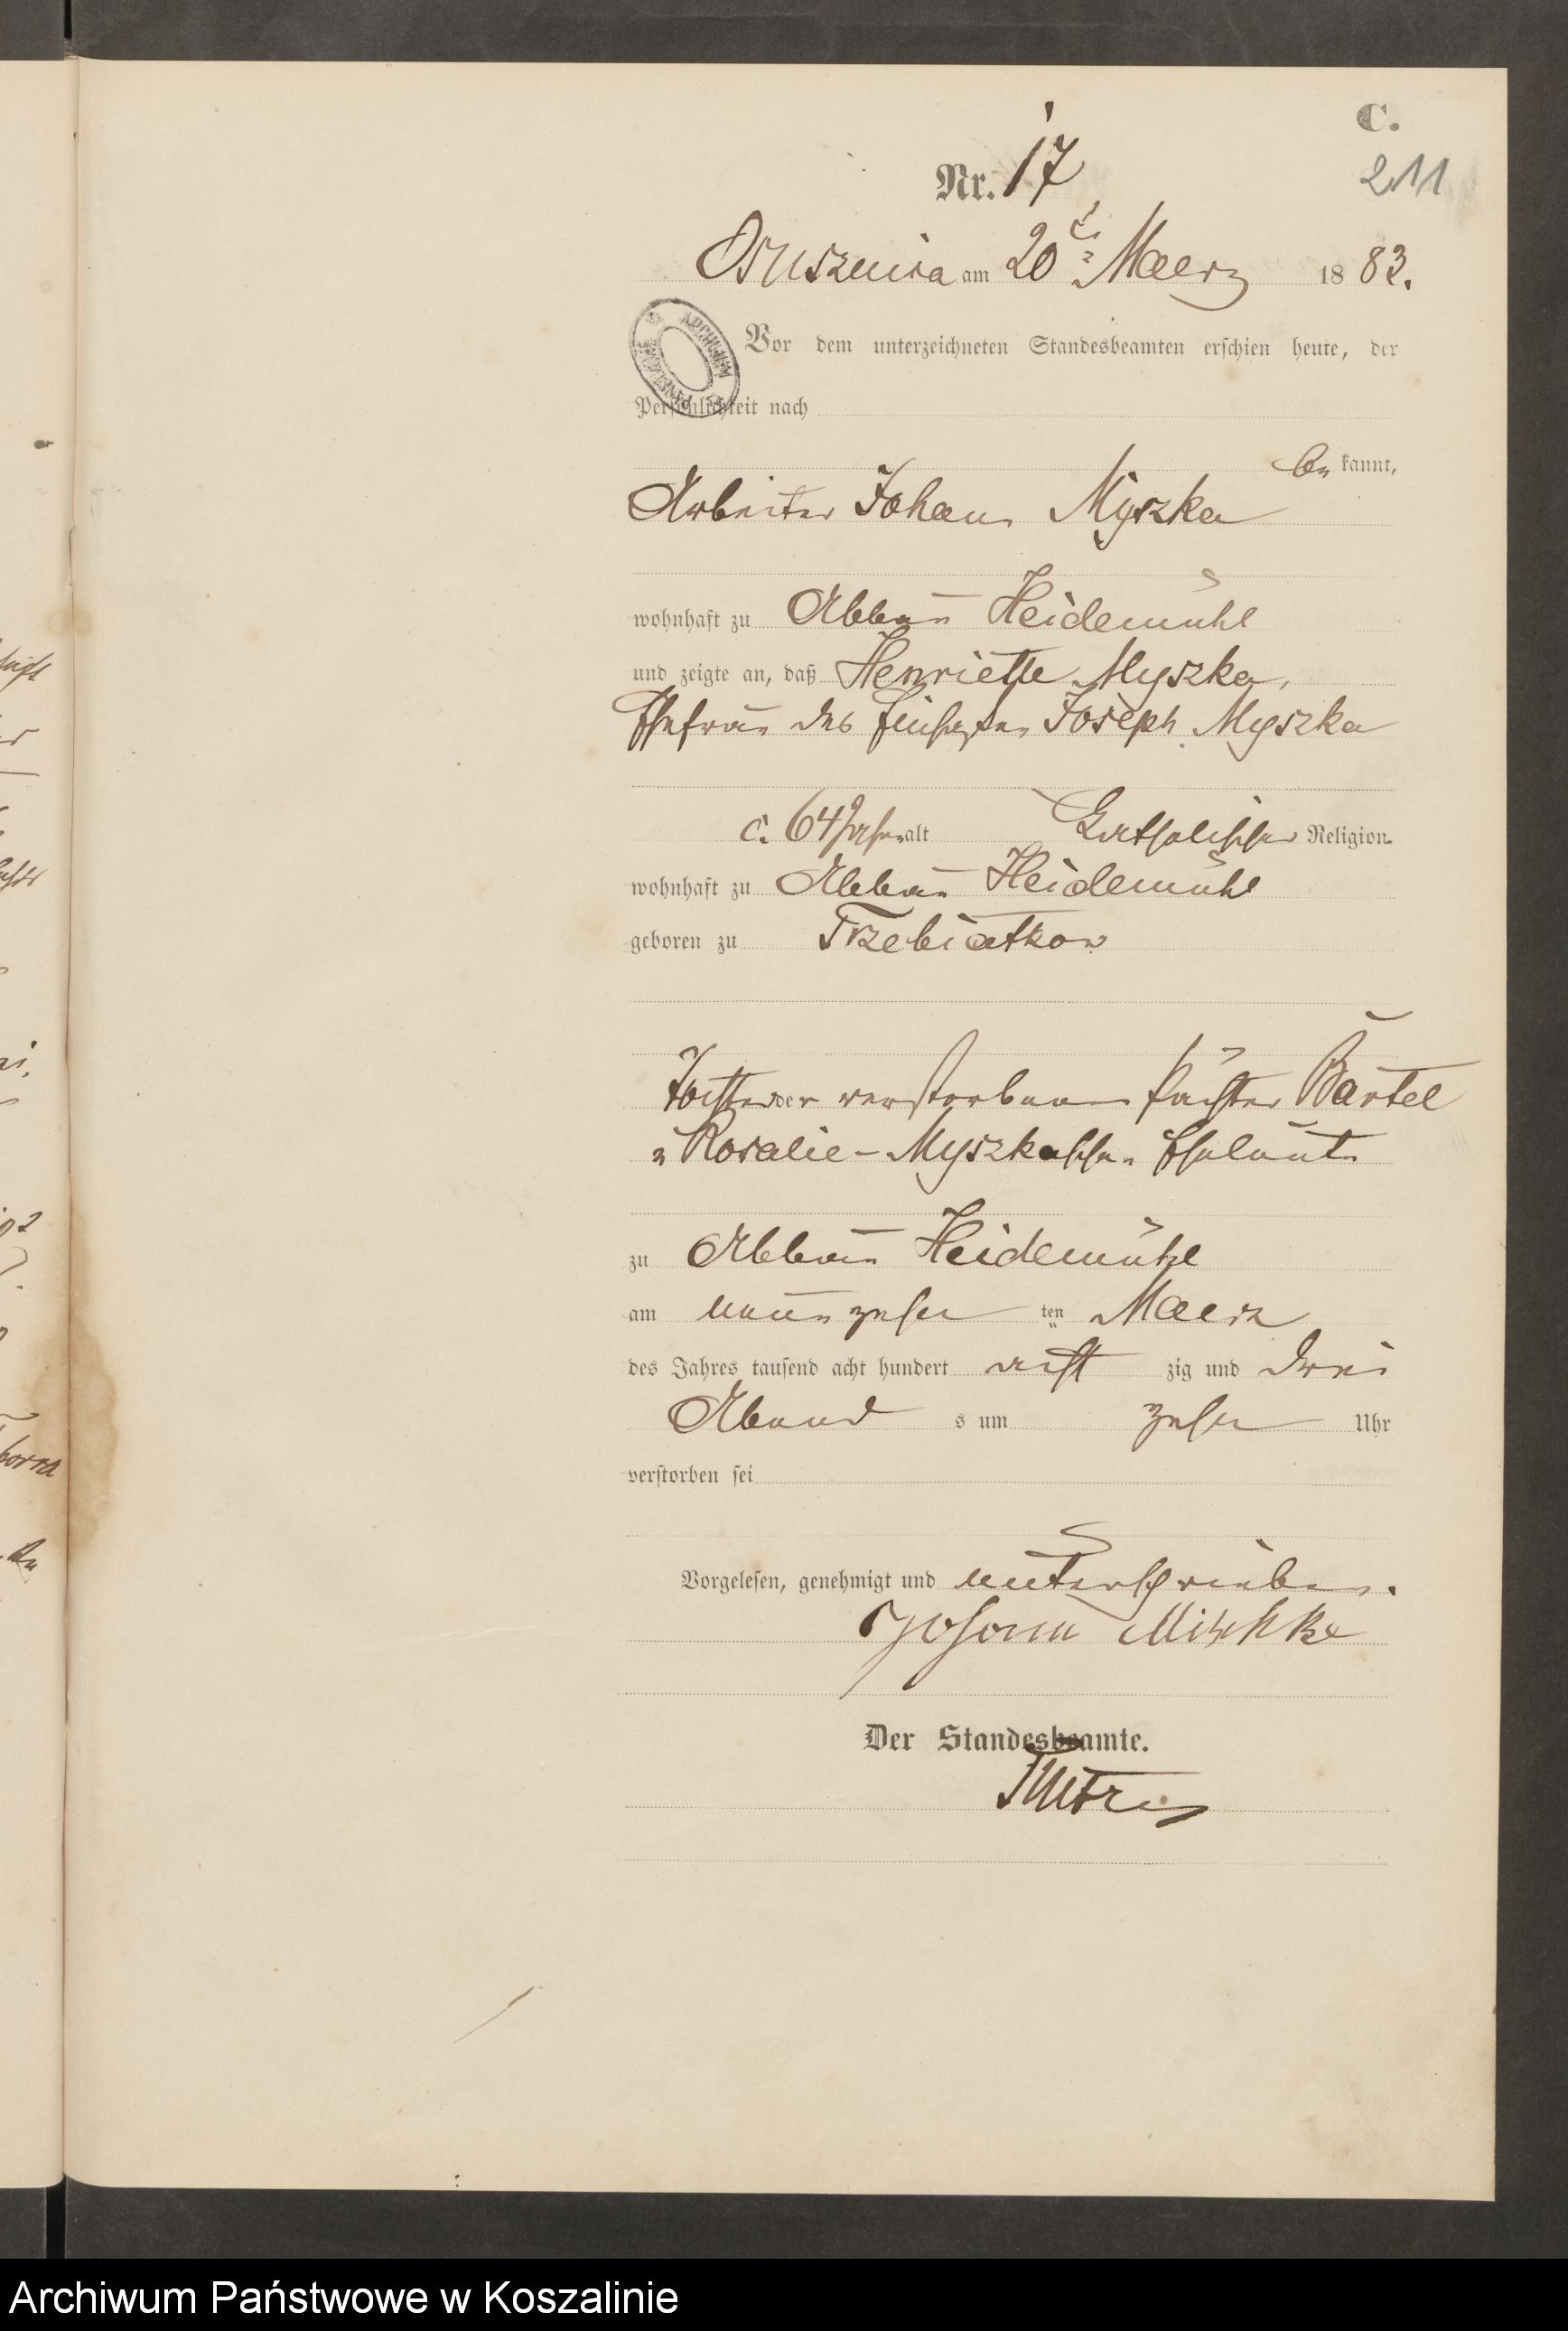 C.
211
Nr. 17
Osuszniza am 20ten Maerz 1883.
Vor dem unterzeichneten Standesbeamten erschien heute, der
Persönlichkeit nach
be kannt,
Arbeiter Johann Myszka
wohnhaft zu Abbau Heidemühl
und zeigte an, daß Henriette Myszka,
Ehefrau des Einsassen Joseph Myszka
c. 64 Jahre alt Katholischer Religion
wohnhaft zu Abbau Heidemühl
geboren zu Trzebiatkow
Tochter der verstorbenen Pächter Bartel
u Rosalie - Myszkaschen Eheleute
zu Abbau Heidemühl
am neunzehn ten Maerz
des Jahres tausend acht hundert acht zig und drei
Abend s um zehn Uhr
verstorben sei
Vorgelesen, genehmigt und unterschrieben.
Johann Mischke
Der Standesbeamte.
Archiwum Państwowe w Koszalinie